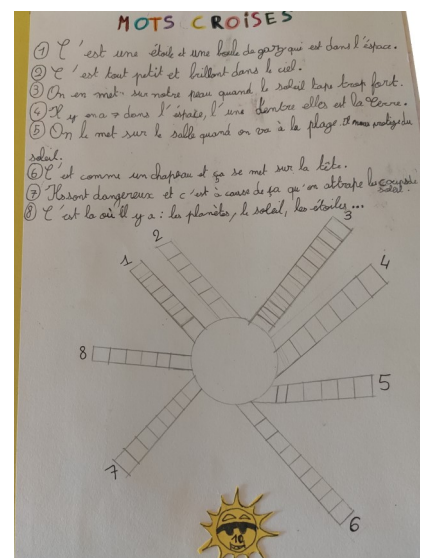 MOTS CROISES
① C'est une étoile et une boule de gaz, qui est dans l'éspace.
② C'est tout petit et brillant dans le ciel.
③ On en met sur notre peau quand le soleil tape trop fort.
④ Il y en a 7 dans l'éspace, l'une d'entre elles est la terre.
⑤ On le met sur le sable quand on va à la plage. Il nous protège du
soleil.
⑥ C'est comme un chapeau et ça se met sur la tête.
⑦ Ils sont dangereux et c'est à cause de ça qu'on attrape les coups de
soleil.
⑧ C'est la où il y a : les planètes, le soleil, les étoiles...
3
2
1
4
8
5
7
6
10